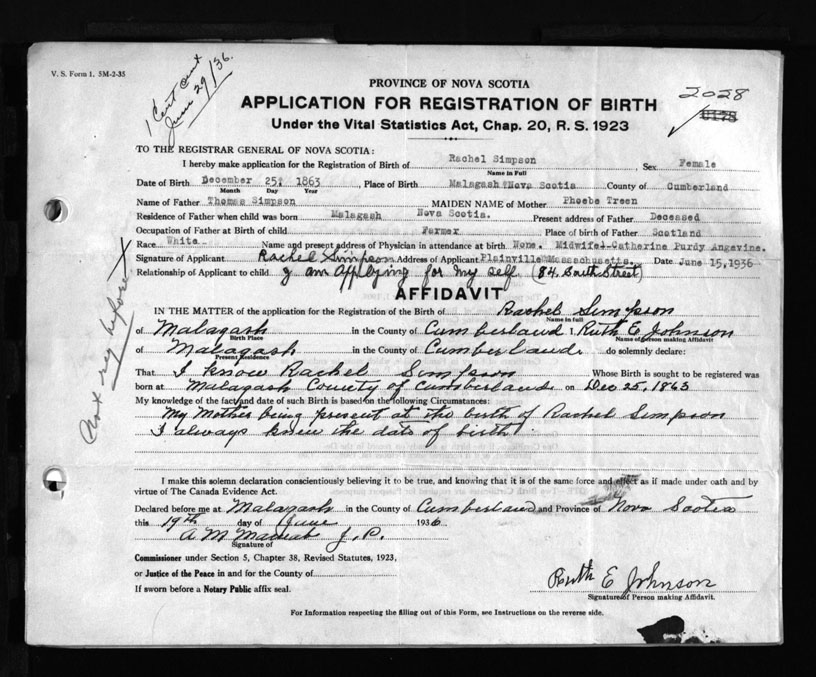 V. S. Form 1. 5M-2-35
1 Cert sent
June 29/36.
PROVINCE OF NOVA SCOTIA
2028
APPLICATION FOR REGISTRATION OF BIRTH
Under the Vital Statistics Act, Chap. 20, R. S. 1923
TO THE REGISTRAR GENERAL OF NOVA SCOTIA:
I hereby make application for the Registration of Birth of Rachel Simpson Sex Female
Name in Full
Date of Birth December 25: 1863 , Place of Birth Malagash Nova Scotia County of Cumberland
Month Day Year
Name of Father Thomas Simpson MAIDEN NAME of Mother Phoebe Treen
Residence of Father when child was born Malagash Nova Scotia. Present address of Father Deceased
Occupation of Father at Birth of child Farmer Place of birth of Father Scotland
Race White Name and present address of Physician in attendance at birth None. Midwife-Catherine Purdy Angevine.
Signature of Applicant Rachel Simpson Address of Applicant Plainville Massachusetts. Date June 15,1936
Relationship of Applicant to child I am Applying for my self (84 South Street)
AFFIDAVIT
IN THE MATTER of the application for the Registration of the Birth of Rachel Simpson
Name in full
of Malagash in the County of Cumberland I, Ruth E Johnson
Birth Place Name of person making Affidavit
of Malagash in the County of Cumberland do solemnly declare:
Present Residence
That I know Rachel Simpson Whose Birth is sought to be registered was
born at Malagash County of Cumberland on Dec 25, 1863
My knowledge of the fact and date of such Birth is based on the following Circumstances:
My Mother being present at the birth of Rachel Simpson
I always knew the date of birth.
Not reg before
I make this solemn declaration conscientiously believing it to be true, and knowing that it is of the same force and effect as if made under oath and by
virtue of The Canada Evidence Act.
Declared before me at Malagash in the County of Cumberland and Province of Nova Scotia
this 19th day of June 1936
A M J. P.
Signature of
Commissioner under Section 5, Chapter 38, Revised Statutes, 1923,
or Justice of the Peace in and for the County of
If sworn before a Notary Public affix seal.
Ruth E Johnson
Signature of Person making Affidavit.
For Information respecting the filling out of this Form, see Instructions on the reverse side.